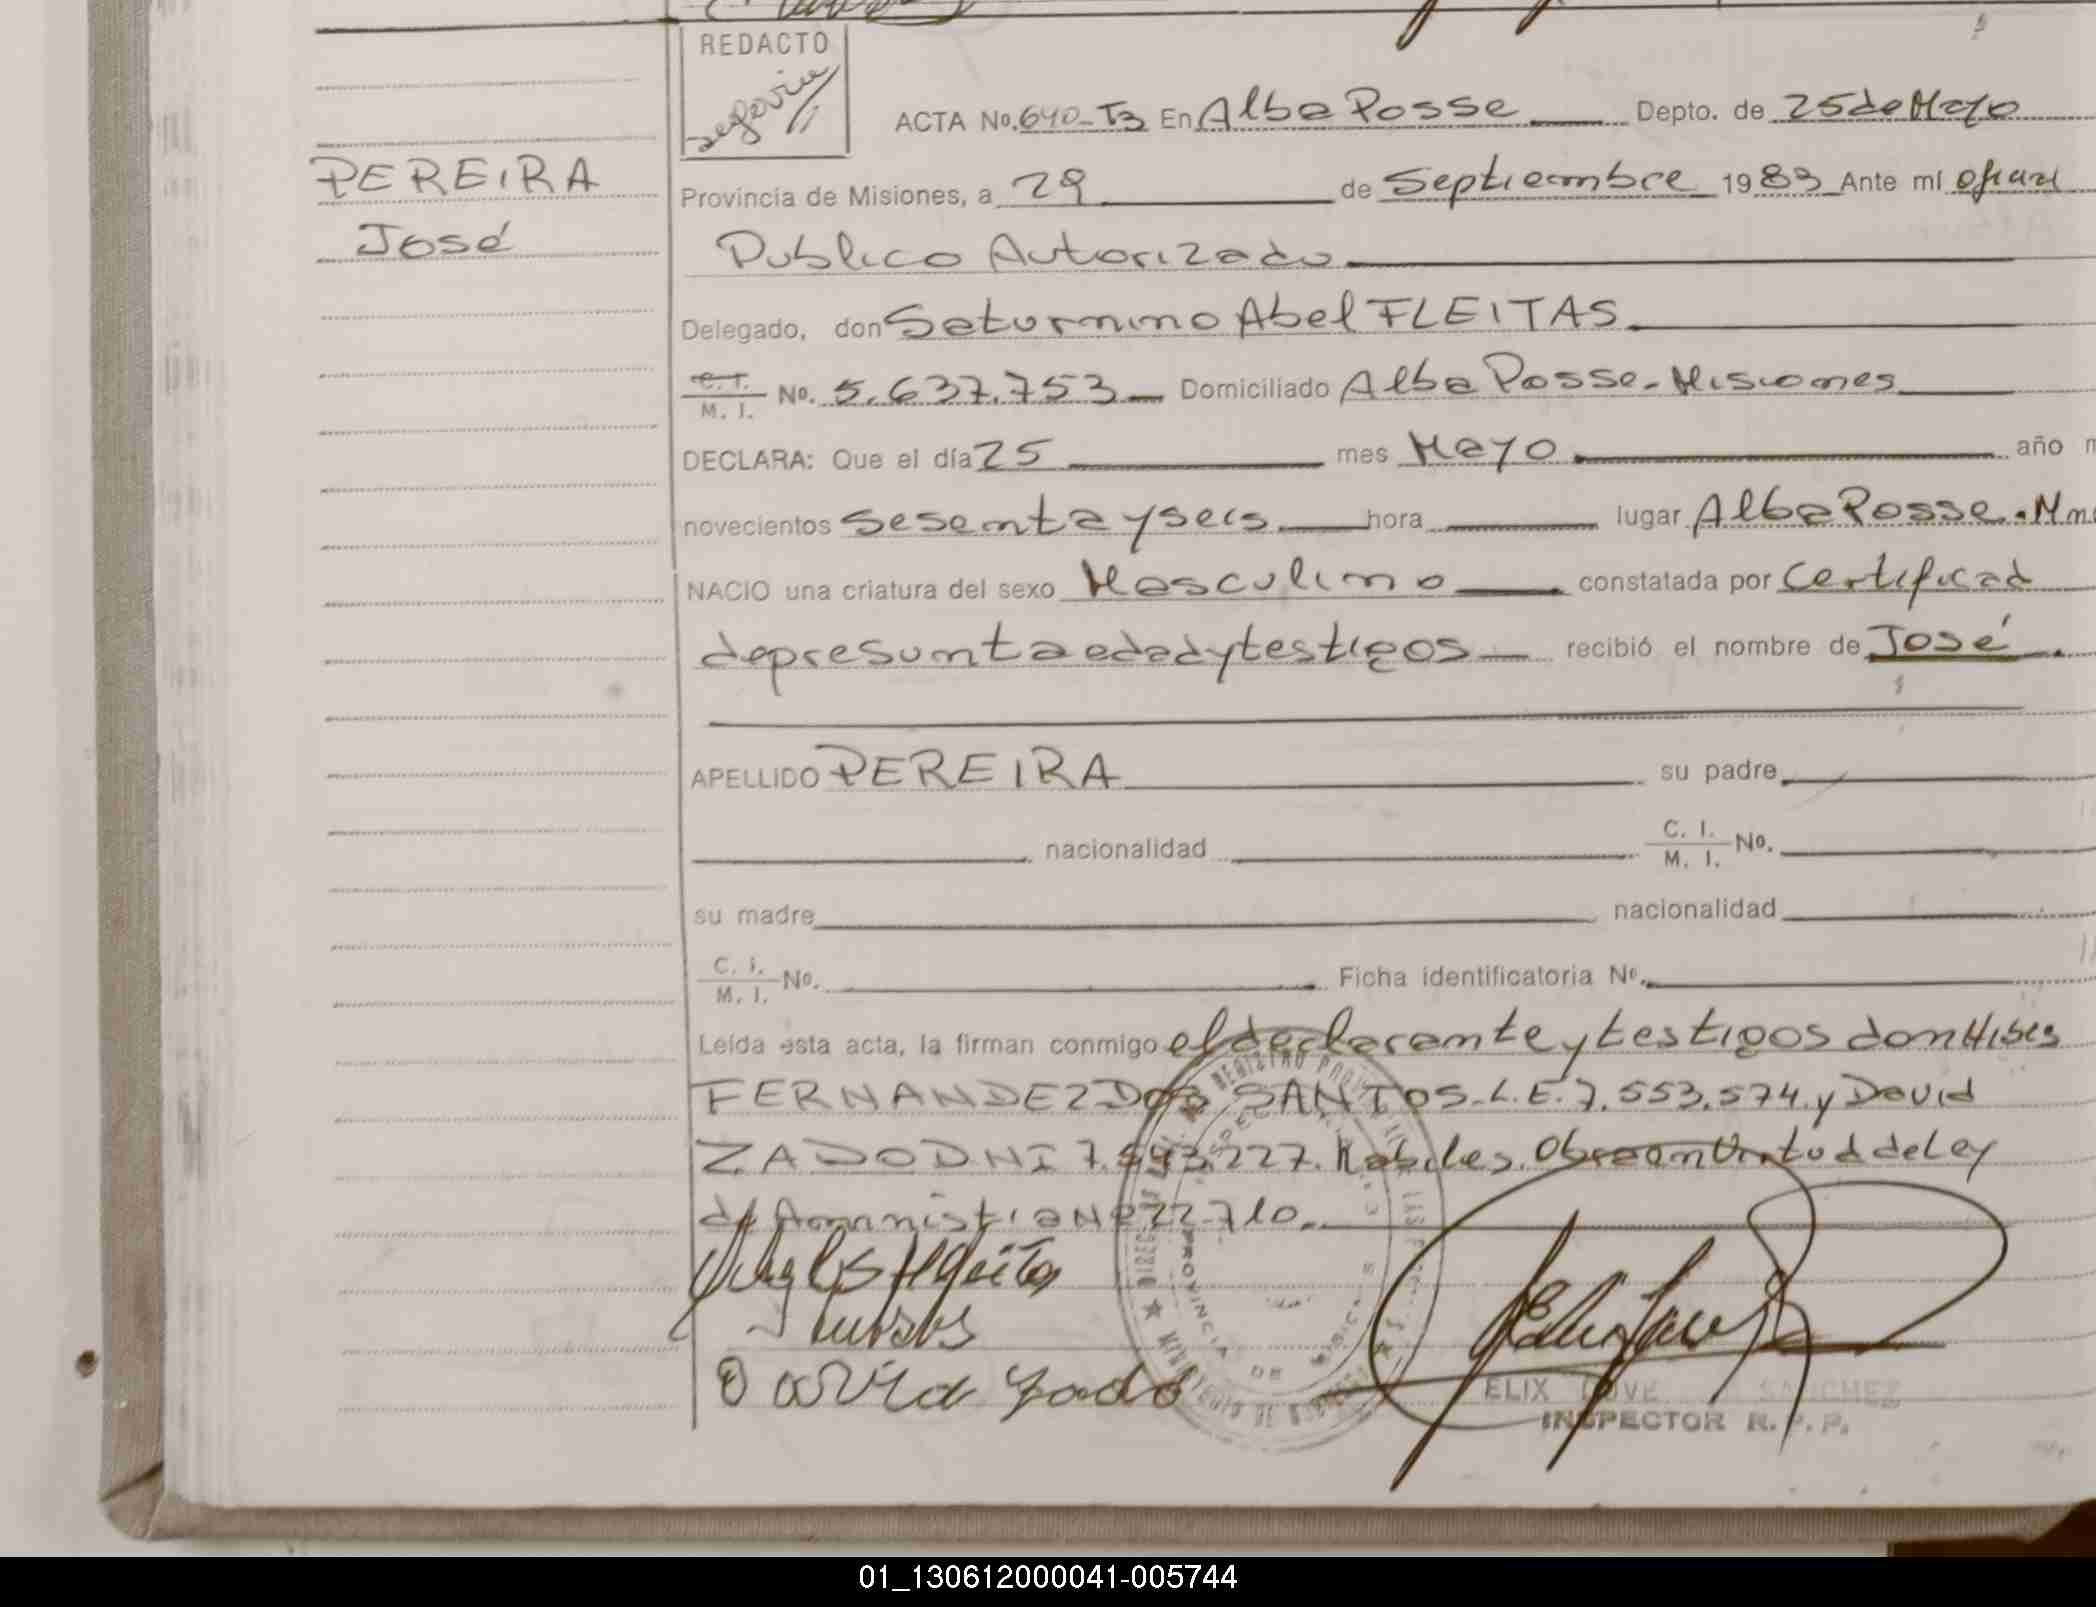 REDACTO
ACTA No. 640-T3 En Alba Posse Depto. de 25 de Mayo
PEREIRA
José
Provincia de Misiones, a 29 de Septiembre 1983 Ante mí oficial
Publico Autorizado
Delegado, don Saturnino Abel FLEITAS
C. I. / M. I. No. 5.637.753 Domiciliado Alba Posse. Misiones
DECLARA: Que el día 25 mes Mayo año m
novecientos sesenta y seis hora lugar Alba Posse. Mnes
NACIO una criatura del sexo Masculino constatada por Certificad
de presunta edad y testigos recibió el nombre de José
APELLIDO PEREIRA su padre
nacionalidad C. I. / M. I. No.
su madre nacionalidad
C. I. / M. I. No. Ficha identificatoria No.
Leída esta acta, la firman conmigo el declarante y testigos don
FERNANDEZ DOS SANTOS. L.E. 7.553.574. y David
ZADODNI 7.543.227. Habiles. Obra en Virtud de Ley
de Amnistia Nº 22.710.
PROVINCIA DE MISIONES
INSPECTOR R. P. P.
01_130612000041-005744